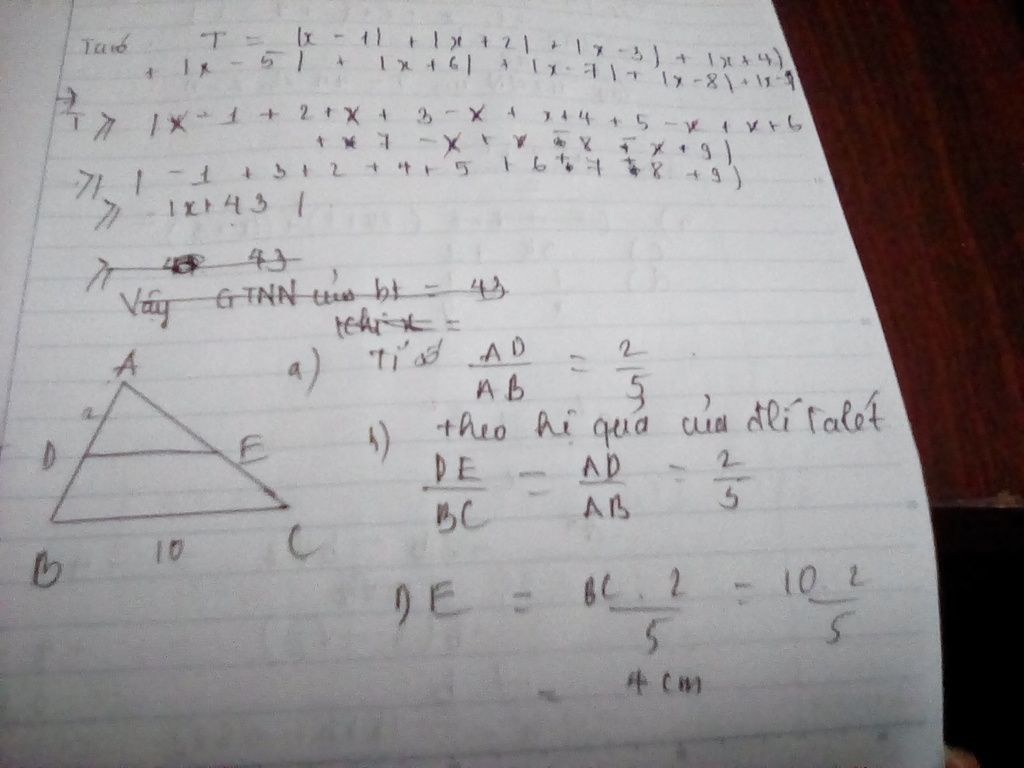 Ta có T = |x - 1| + |x + 2| + |x - 3| + |x + 4|
+ |x - 5| + |x + 6| + |x - 7| + |x - 8| + |x - 9
T ≥ |x - 1 + 2 + x + 3 - x + x + 4 + 5 - x + x + 6
+ 7 - x + x 8 x + 9|
≥ | - 1 + 3 + 2 + 4 + 5 + 6 + 7 + 8 + 9|
≥ |x + 43|
≥ 43
Vậy GTNN của bt = 43
khi x =
a) Tỉ số AD/AB = 2/5
b) theo hệ quả của đlí Talét
DE/BC = AD/AB = 2/5
DE = BC . 2/5 = 10 . 2/5
= 4 cm
A
2
D E
B 10 C